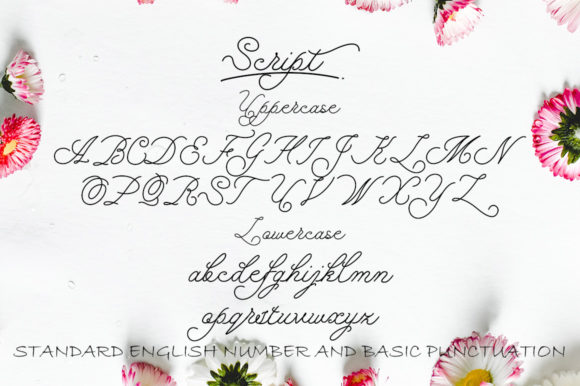 Script.
Uppercase
ABCDEFGHIJKLMN
OPQRSTUVWXYZ
Lowercase
abcdefghijklmn
opqrstuvwxyz
STANDARD ENGLISH NUMBER AND BASIC PUNCTUATION